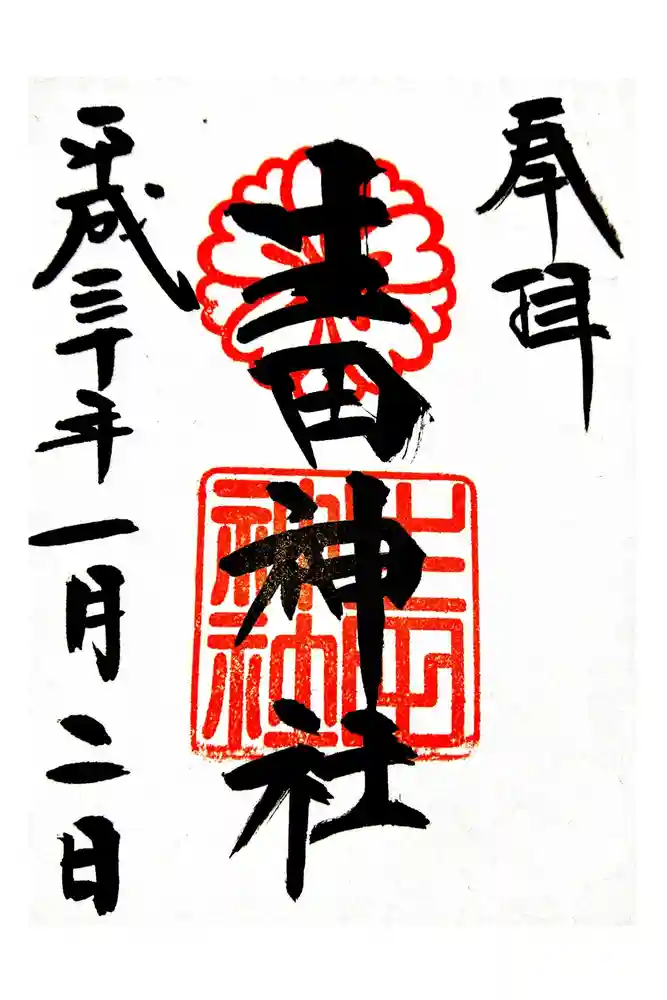 奉拝
生田神社
生田
神社
平成三十年一月二日